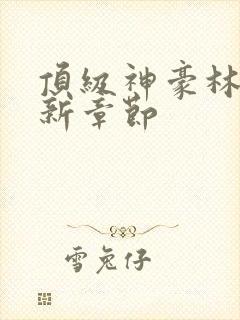 頂級神豪林
新章節
雪兔仔